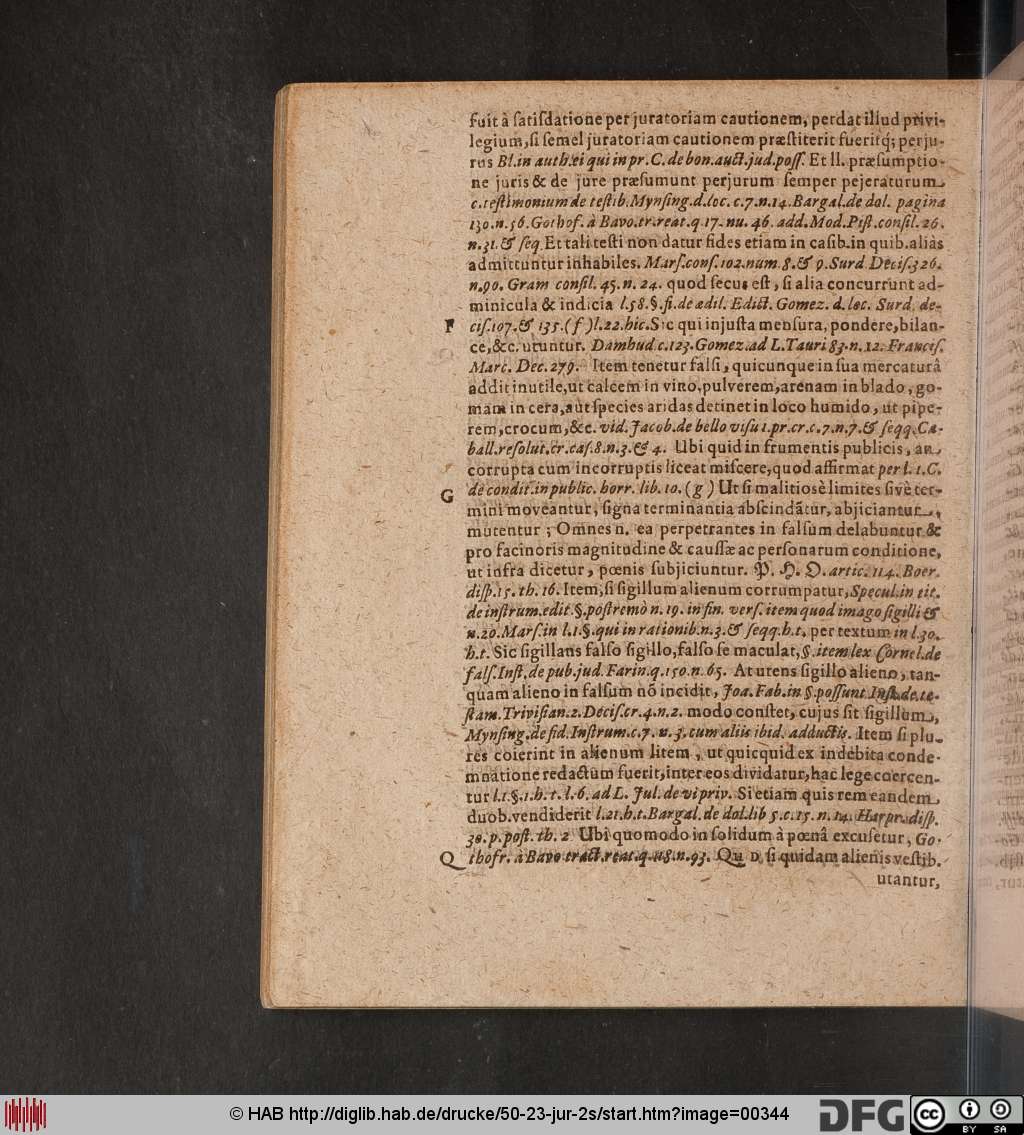 fuit à ſatiſdatione per juratoriam cautionem, perdat illud privi-
legium, ſi ſemel juratoriam cautionem præſtiterit fueritq́; perju-
rus Bl. in auth. ei qui in pr. C. de bon. auct. jud. poſſ. Et ll. præſumptio-
ne juris & de jure præſumunt perjurum ſemper pejeraturum
c. teſtimonium de teſtib. Mynſing. d. loc. c. 7. n. 14. Bargal. de dol. pagina
130. n. 56. Gothof. à Bavo. tr. reat. q. 17. nu. 46. add. Mod. Piſt. conſil. 26.
n. 31. & ſeq. Et tali teſti non datur fides etiam in caſib. in quib. aliàs
admittuntur inhabiles. Marſ. conſ. 102. num 8. & 9. Surd. Deciſ. 326.
n. 90. Gram conſil. 45. n. 24. quod ſecus eſt, ſi alia concurrunt ad-
minicula & indicia l. 58. §. fi. de ædil. Edict. Gomez. d. loc. Surd. de-
F ciſ. 107. & 135. (f) l. 22. hic. Sic qui injuſta menſura, pondere, bilan-
ce, &c. utuntur. Damhud. c. 123. Gomez. ad L. Tauri 83. n. 12. Franciſ.
Marc. Dec. 279. Item tenetur falſi, quicunque in ſua mercaturâ
addit inutile, ut calcem in vino, pulverem, arenam in blado, go-
mam in cera, aut ſpecies aridas detinet in loco humido, ut pipe-
rem, crocum, &c. vid. Jacob. de bello viſu 1. pr. cr. c. 7. n. 7. & ſeqq. Ca-
ball. reſolut. cr. caſ. 8. n. 3. & 4. Ubi quid in frumentis publicis, an
corrupta cum incorruptis liceat miſcere, quod affirmat per l. 1. C.
G de condit. in public. horr. lib. 10. (g) Ut ſi malitioſè limites ſivè ter-
mini moveantur, ſigna terminantia abſcindãtur, abjiciantur,
mutentur; Omnes n. ea perpetrantes in falſum delabuntur &
pro facinoris magnitudine & cauſſæ ac perſonarum conditione,
ut infra dicetur, pœnis ſubjiciuntur. P. H. O. artic. 114. Boer.
diſp. 15. th. 16. Item, ſi ſigillum alienum corrumpatur, Specul. in tit.
de inſtrum. edit. §. poſtremò n. 19. in fin. verſ. item quod imago ſigilli &
n. 20. Marſ. in l. 1. §. qui in rationib. n. 3. & ſeqq. h. t. per textum in l. 30.
h. t. Sic ſigillans falſo ſigillo, falſo ſe maculat, §. item lex Cornel. de
falſ. Inſt. de pub. jud. Farin. q. 150. n. 65. At utens ſigillo alieno, tan-
quam alieno in falſum nõ incidit, Joa. Fab. in §. poſſunt. Inſt. de te-
ſtam. Triviſian. 2. Deciſ. cr. 4. n. 2. modo conſtet, cujus ſit ſigillum,
Mynſing. de fid. Inſtrum. c. 7. n. 3. cum aliis ibid. adductis. Item ſi plu-
res coierint in alienum litem, ut quicquid ex indebita conde-
mnatione redactum fuerit, inter eos dividatur, hac lege coercen-
tur l. 1. §. 1. h. t. l. 6. ad L. Jul. de vi priv. Si etiam quis rem eandem
duob. vendiderit l. 21. h. t. Bargal. de dol. lib 5. c. 15. n. 14. Harpr. diſp.
38. p. poſt. th. 2 Ubi quomodo in ſolidum à pœnâ excuſetur, Go-
Q thofr. à Bavo tract. reat. q. 118. n. 93. Qu D. ſi quidam alienis veſtib.
utantur,
© HAB http://diglib.hab.de/drucke/50-23-jur-2s/start.htm?image=00344
DFG
cc BY SA